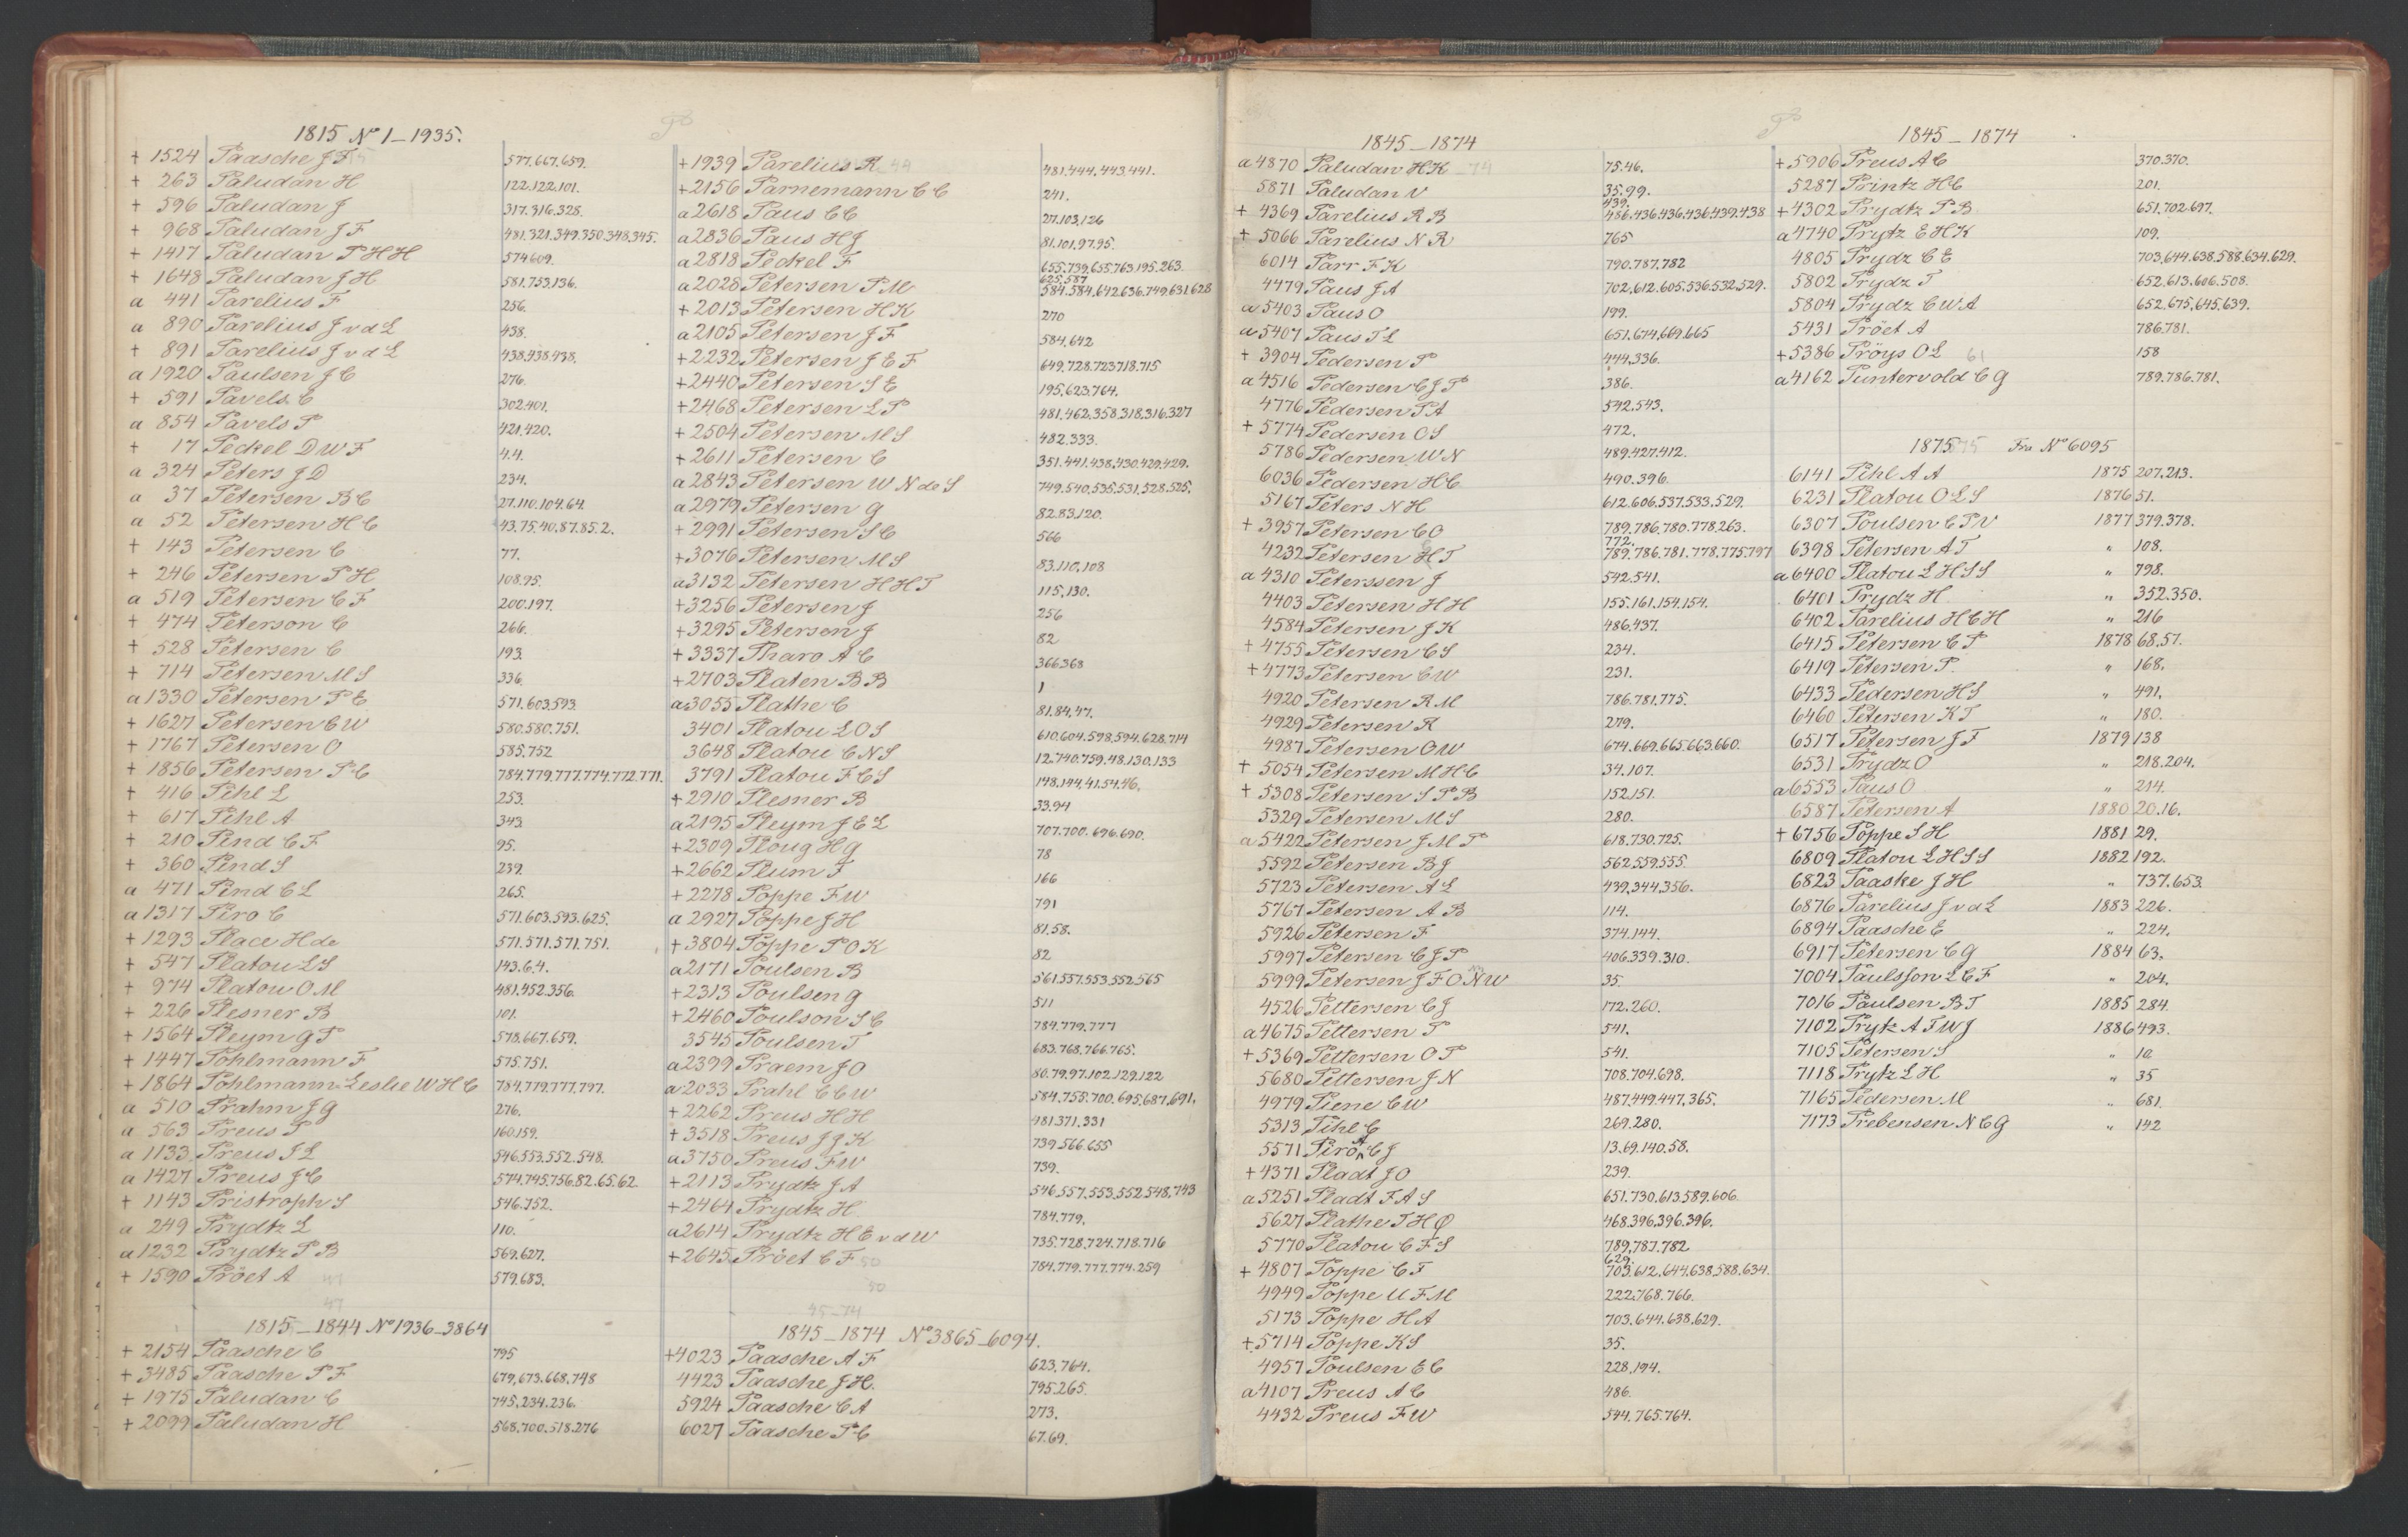 P
1815 No 1_1935.
+ 1524 Paasche J F 577.667.659.
+ 263 Paludan H 122.122.101.
+ 596 Paludan J 317.316.328.
+ 968 Paludan J F 481.321.349.350.348.345.
+ 1417 Paludan P H H 574.609.
+ 1648 Paludan J H 581.753.136.
a 441 Parelius F 256.
a 890 Parelius J v d L 438.
+ 891 Parelius J v d L 438.438.438.
a 1920 Paulsen J C 276.
+ 591 Pavels C 302.401.
a 854 Pavels P 421.420.
+ 17 Peckel D W F 4.4.
a 324 Peters J D 234.
a 37 Petersen B C 27.110.104.64.
a 52 Petersen H C 43.75.40.87.85.2.
+ 143 Petersen C 77.
+ 246 Petersen P H 108.95.
a 519 Petersen C F 200.197.
+ 474 Peterson C 266.
+ 528 Petersen C 193.
+ 714 Petersen M S 336.
a 1330 Petersen P E 571.603.593.
+ 1627 Petersen C W 580.580.751.
+ 1767 Petersen O 585.752
+ 1856 Petersen P C 784.779.777.774.772.771.
+ 416 Pihl L 253.
+ 617 Pihl A 343.
+ 210 Pind C F 95.
+ 360 Pind S 239.
a 471 Pind C L 265.
a 1317 Piro C 571.603.593.625.
+ 1293 Place H de 571.571.571.751.
+ 547 Platou L S 143.6.4.
+ 974 Platou O M 481.452.356.
+ 226 Plesner B 101.
+ 1564 Pleym G P 578.667.659.
+ 1447 Pohlmann F 575.751.
+ 1864 Pohlmann Leslie W H C 784.779.777.797.
a 510 Prahm J G 276.
a 563 Preus P 160.159.
a 1133 Preus J L 546.553.552.548.
a 1427 Preus J C 574.745.756.82.65.62
+ 1143 Pristroph S 546.752.
a 249 Prydtz L 110.
a 1232 Prydtz P B 569.627.
+ 1590 Pröet A 579.683.
1815_1844 No 1936_3864
+ 2154 Paasche C 795
+ 3485 Paasche P F 679.673.668.748
+ 1975 Paludan C 745.234.236.
+ 2099 Paludan H 568.700.518.276
+ 1939 Parelius R 481.444.443.441.
+ 2156 Parnemann C C 241.
a 2618 Paus C C 27.103.126
a 2836 Paus H J 81.101.97.95.
a 2818 Peckel F 655.739.655.763.195.263.
625.587
a 2028 Petersen P M 584.584.642.636.749.631.628
+ 2013 Petersen H K 270
a 2105 Petersen J F 584.642
+ 2232 Petersen J E F 649.728.723.718.715
+ 2440 Petersen S E 195.623.764.
+ 2468 Petersen L P 481.462.358.318.316.327
+ 2504 Petersen M S 482.333.
+ 2611 Petersen C 351.441.438.430.429.429.
a 2843 Petersen W N de S 749.540.535.531.528.525.
a 2979 Petersen G 82.83.120.
+ 2991 Petersen S C 566
+ 3076 Petersen M S 83.110.108
a 3132 Petersen H H T 115.130.
+ 3256 Petersen J 256
+ 3295 Peterson J 82
+ 3337 Pharo A C 366.368
+ 2703 Platen B B 1
a 3055 Plathe C 81.84.47.
3401 Platou L O S 610.604.598.594.628.714
3648 Platou C N S 12.740.759.48.130.133
3791 Platou F C S 148.144.41.54.46.
+ 2910 Plesner B 33.94
a 2195 Pleym J E L 707.700.696.690.
+ 2309 Ploug H G 78
+ 2662 Plum F 166
+ 2278 Poppe F W 791
a 2927 Poppe J H 81.58.
+ 3804 Poppe P O K 82
a 2171 Poulsen B 561.557.553.552.565
+ 2313 Poulsen G 511
+ 2460 Poulson S C 784.779.777
3545 Poulsen T 683.768.766.765.
a 2399 Praem J O 80.79.97.102.129.122
a 2033 Prahl C C W 584.755.700.695.687.691.
+ 2262 Preus H H 481.371.331
+ 3518 Preus J J K 739.566.655
a 3750 Preus F W 739.
+ 2113 Prydtz J A 546.557.553.552.548.743
+ 2464 Prydtz H 784.779.
a 2614 Prydtz H E v d W 735.728.724.718.716
+ 2645 Pröet C F 784.779.777.774.259
50
45-74
1845_1874 No 3865_6094.
+ 4023 Paasche A F 623.764.
4423 Paasche J H. 795.265.
5924 Paasche C A 273.
6027 Paasche P C 67.69.
P
1845_1874
a 4870 Paludan H K 75.46.
5871 Paludan V 35.99.
439.
+ 4369 Parelius R B 486.436.436.436.439.438
+ 5066 Parelius N R 765
6014 Parr F K 790.787.782
4479 Paus J A 702.612.605.536.532.529.
a 5403 Paus O 199.
a 5407 Paus T L 651.674.669.665
+ 3904 Pedersen P 444.336.
a 4516 Pedersen C J P 386.
4776 Pedersen P A 542.543.
+ 5774 Pedersen O S 472.
5786 Pedersen W N 489.427.412.
6036 Pedersen H C 490.396.
5167 Peters N H 612.606.537.533.529.
+ 3957 Petersen C O 789.786.780.778.263.
772.
4232 Petersen H T 789.786.781.778.775.797
a 4310 Peterssen J 542.541.
4403 Petersen H H 155.161.154.154.
4584 Petersen J K 486.437.
+ 4755 Petersen C S 234.
+ 4773 Petersen C W 231.
4920 Petersen R M 786.781.775.
4929 Petersen K 279.
4987 Petersen O W 674.669.665.663.660.
+ 5054 Petersen M H C 34.107.
+ 5308 Petersen S P B 152.151.
5329 Petersen M S 280.
a 5422 Petersen J M P 618.730.725.
5592 Petersen B J 562.559.555
5723 Petersen A L 439.344.356.
5767 Petersen A B 114.
5926 Petersen F 374.144.
5997 Petersen C J P 406.339.310.
5999 Petersen J F O N W 35.
4526 Pettersen C J 172.260.
a 4675 Pettersen P 541.
+ 5369 Pettersen O P 541.
5680 Pettersen J N 708.704.698.
4979 Piene C W 487.449.447.365.
5313 Pihl C 269.280.
5571 Piro A C J 13.69.140.58.
+ 4371 Pladt J O 239.
a 5251 Pladt F A S 651.730.613.589.606.
5627 Plathe T H Ø 468.396.396.396.
5770 Platou C F S 789.787.782
629.
+ 4807 Poppe C F 703.612.644.638.588.634.
4949 Poppe U F M 222.768.766.
5173 Poppe H A 703.644.638.629.
+ 5714 Poppe K S 35.
4957 Poulsen E C 228.194.
a 4107 Preus A C 486.
4432 Preus F W 544.765.764.
1845_1874
+ 5906 Preus A C 370.370.
5287 Printz H C 201.
+ 4302 Prydtz P B 651.702.697.
a 4740 Prytz E H K 109.
4805 Prydz C E 703.644.638.588.634.629.
5802 Prydz T 652.613.606.508.
5804 Prydz C W A 652.675.645.639.
5431 Pröet A 786.781.
+ 5386 Pröys O L 61 158
a 4162 Puntervold C G 789.786.781.
1875 Fra No 6095
6141 Pihl A A 1875 207.213.
6231 Platou O L S 1876 51.
6307 Poulsen C P V 1877 379.378.
6398 Petersen A T " 108.
a 6400 Platou L H S S " 798.
6401 Prydz H. " 352.350.
6402 Parelius H C H " 216
6415 Petersen C P 1878 68.57.
6419 Petersen P. " 168.
6433 Pedersen H S " 491.
6460 Petersen K T " 180.
6517 Petersen J F 1879 138
6531 Prydz O " 218.204.
a 6553 Paus O " 214.
6587 Petersen A 1880 20.16.
+ 6756 Poppe S H 1881 29.
6809 Platou L H S S 1882 192.
6823 Paaske J H " 737.653.
6876 Parelius J v d L 1883 226.
6894 Paasche E " 224.
6917 Petersen C G 1884 63.
7004 Paulsson L C F " 204.
7016 Paulsen B T 1885 284.
7102 Prytz A F W J 1886 493.
7105 Petersen S " 10
7118 Prytz L H " 35
7165 Pedersen M " 681.
7173 Prebensen N C G " 142